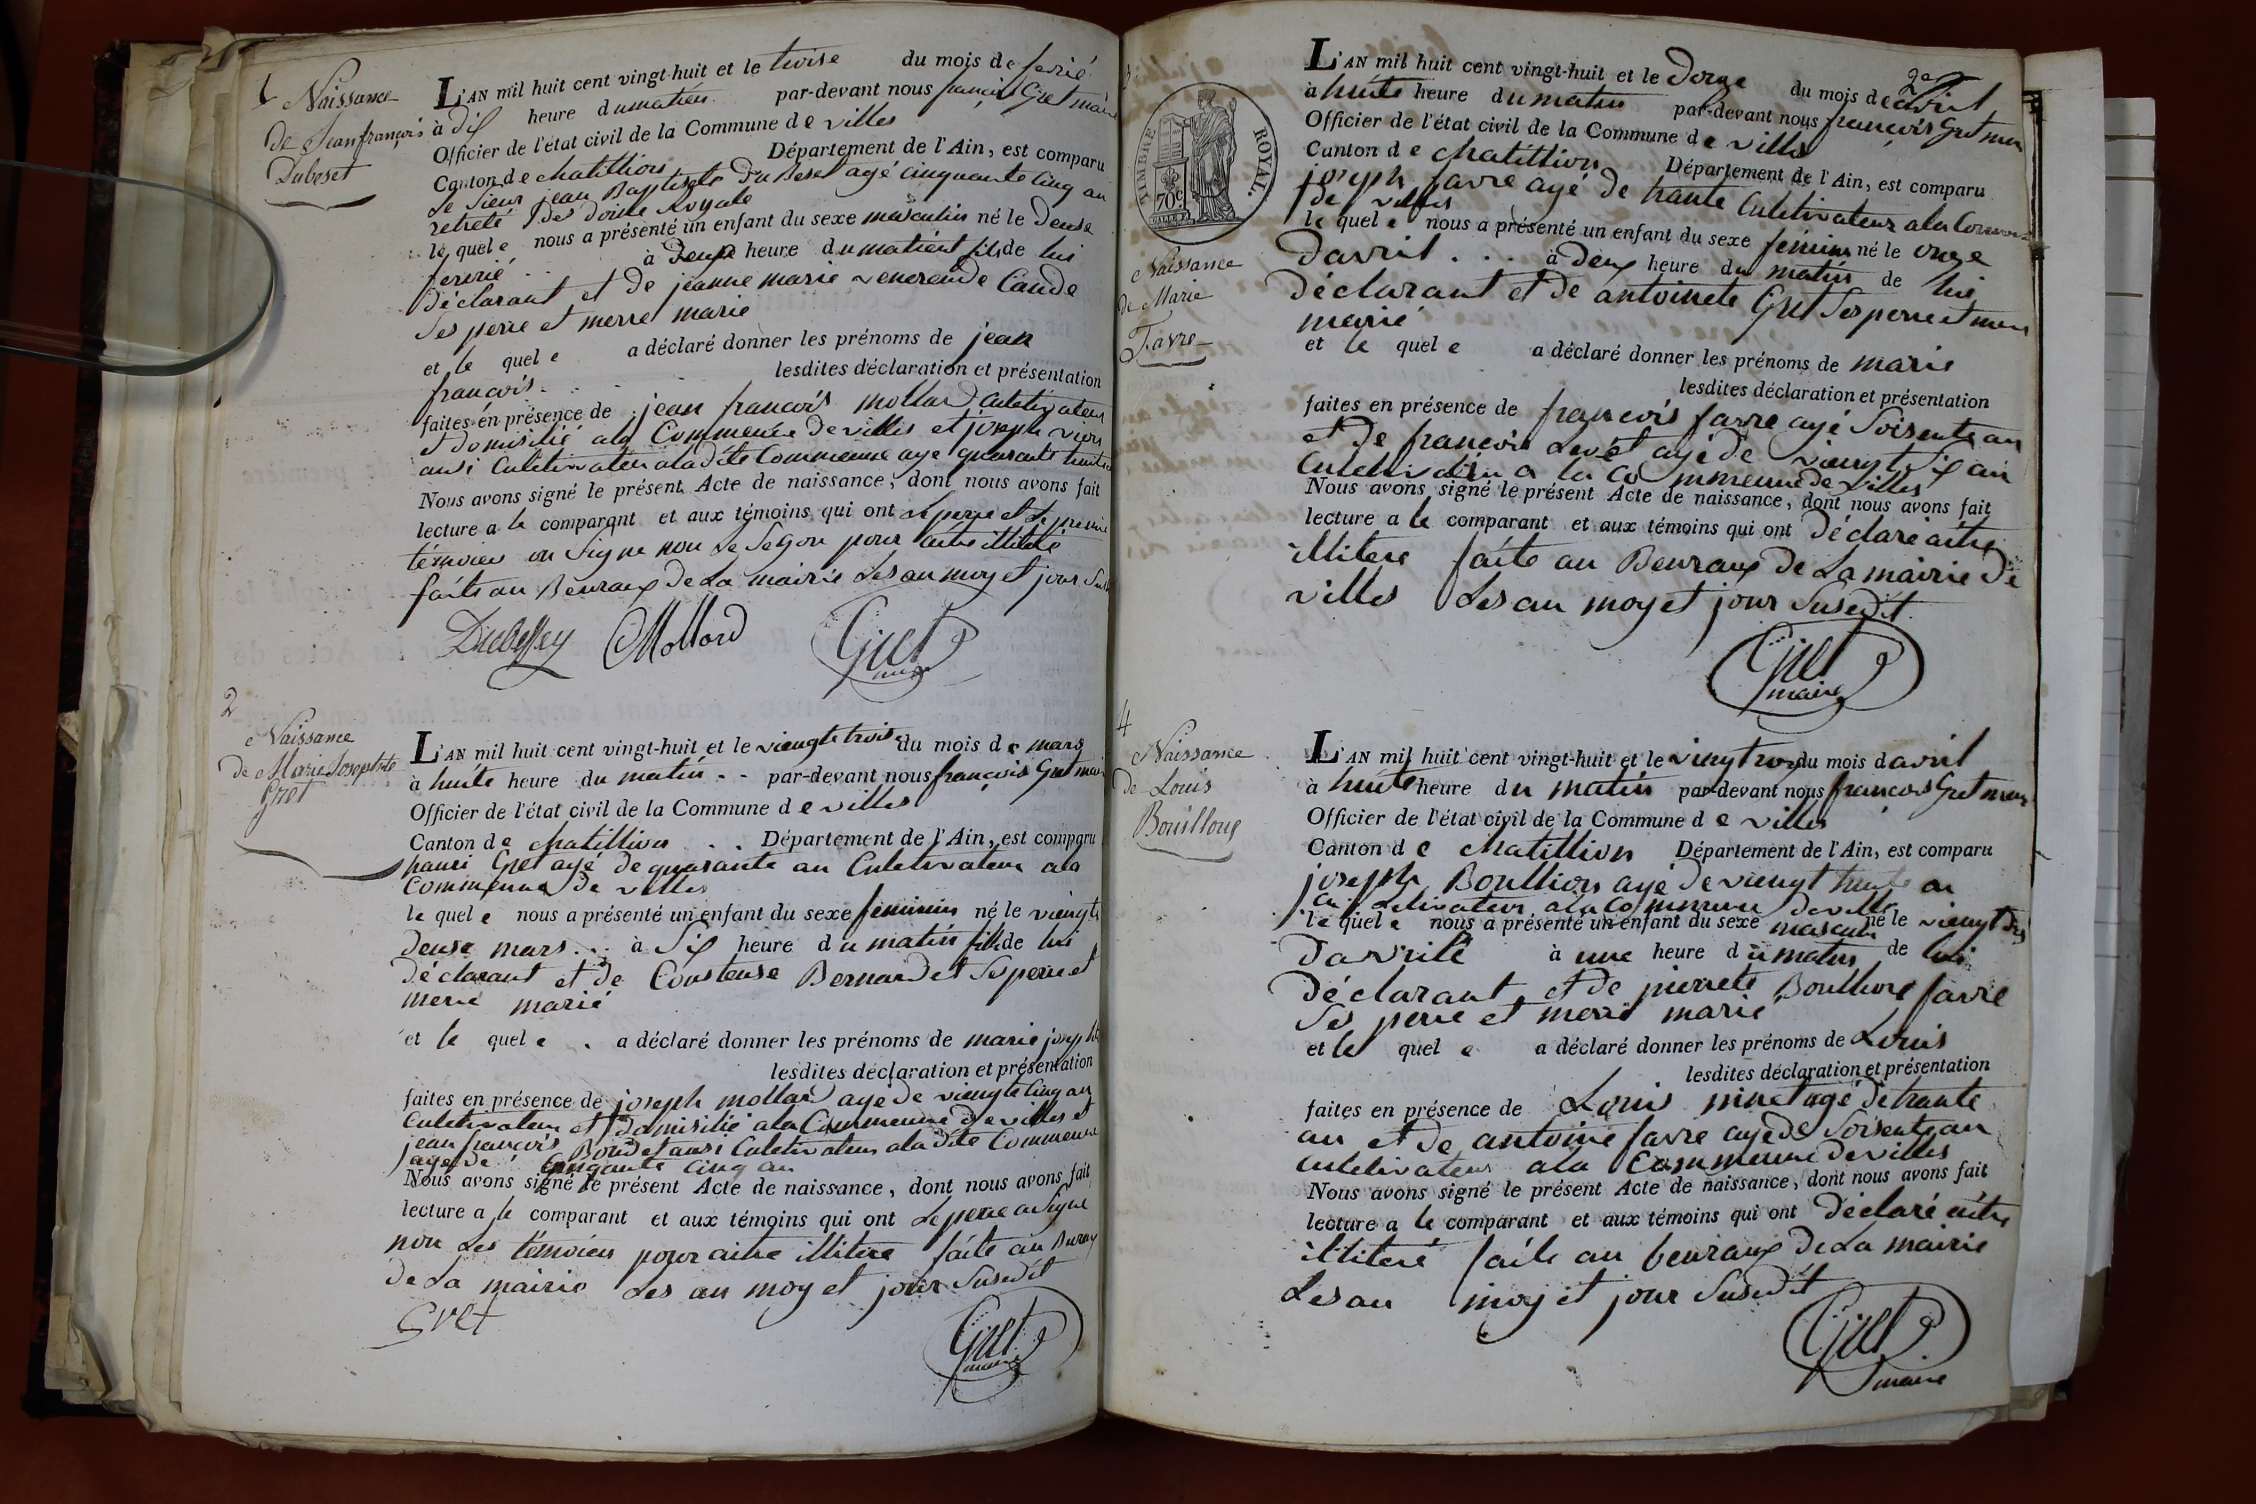 1
Naissance
de Jean françois
Dubeset
L'AN mil huit cent vingt-huit et le treise du mois de ferié
à dix heure du matien par-devant nous françois Gret maire
Officier de l'état civil de la Commune de villes
Canton de chatillion Département de l'Ain, est comparu
Le Sieur jean Baptiste duBeset agé cinquante cinq an
retreté des doine Royale
le quel e nous a présenté un enfant du sexe masculin né le Deuse
fevrié à Deux heure du matient fils de lui
Déclarant et de jeanne marie Caude
Ses perre et merre marie
et le quel e a déclaré donner les prénoms de jean
françois lesdites déclaration et présentation
faites en présence de jean françois mollard Culetivateur
et domisilié ala Commeune de villes et joseph
ausi Culetivateur aladite Commeune aye quarante
Nous avons signé le présent Acte de naissance, dont nous avons fait
lecture a le comparant et aux témoins qui ont Le perre et le premié
témoien on Signe non le Segon pour aitre illiteré
faite au Beuraux de La mairie Les an moy et jour
Dubessey Mollard Gret maire
2
Naissance
de Marie Josephte
Gret
L'AN mil huit cent vingt-huit et le viengte trois du mois de mars
à huite heure du matin par-devant nous françois Gret maire
Officier de l'état civil de la Commune de villes
Canton de chatillion Département de l'Ain, est comparu
hanri Gret ayé de quarante an Culetivateur ala
Commeune de villes
le quel e nous a présenté un enfant du sexe feminin né le viengte
deuse mars à Six heure du matin fille de lui
déclarant et de Consteuse Bernardet Ses perre et
merre marié
et le quel e a déclaré donner les prénoms de marie josephte
lesdites déclaration et présentation
faites en présence de joseph mollard aye de viengte cinq an
Culetivateur et domisilié ala Commeune de villes et
jean françois Boudet ausi Culetivateur aladite Commeune
aye de cinqante cinq an
Nous avons signé le présent Acte de naissance, dont nous avons fait
lecture a le comparant et aux témoins qui ont Le perre a Signe
non Les témoien pour aitre illitere faite au Buraux
de La mairie Les an moy et jour Susedit
Gret Gret maire
2e
TIMBRE ROYAL.
70c.
3
Naissance
de Marie
Favre
L'AN mil huit cent vingt-huit et le Douze du mois de avril
à huite heure du matin par-devant nous françois Gret maire
Officier de l'état civil de la Commune de villes
Canton de chatillion Département de l'Ain, est comparu
joseph favre ayé de trante Culetivateur ala Commeune
de villes
le quel e nous a présenté un enfant du sexe féminin né le onze
davril à deux heure du matin de lui
Déclarant et de antoinete Gret Ses perre et merre
marié
et le quel e a déclaré donner les prénoms de marie
lesdites déclaration et présentation
faites en présence de françois favre ayé Soisente an
et de françois Levet ayé de viengt Six an
Culetivateur a la Commeune de villes
Nous avons signé le présent Acte de naissance, dont nous avons fait
lecture a le comparant et aux témoins qui ont Déclaré aitre
illitere faite au Beuraux de La mairie de
villes Les an moy et jour Susedit
Gret maire
4
Naissance
de Louis
Bouilloux
L'AN mil huit cent vingt-huit et le viengt trois du mois d avril
à huite heure du matin par-devant nous françois Gret maire
Officier de l'état civil de la Commune de villes
Canton de chatillion Département de l'Ain, est comparu
joseph Boullion ayé de viengt huite an
Culetivateur ala Commeune de ville
le quel e nous a présenté un enfant du sexe masculin né le viengt
Davrile à une heure du matin de lui
Déclarant et de pierrete Boullione favre
Ses perre et merre marie
et le quel e a déclaré donner les prénoms de Louis
lesdites déclaration et présentation
faites en présence de Louis ninet agé de trante
an et de antoine favre ayé de Soisente an
Culetivateur ala Commeune de villes
Nous avons signé le présent Acte de naissance, dont nous avons fait
lecture a le comparant et aux témoins qui ont déclaré aitre
illiteré faite au beuraux de La mairie
Les an moy et jour Susedit
Gret maire